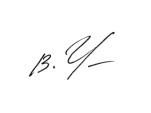 B. Y-